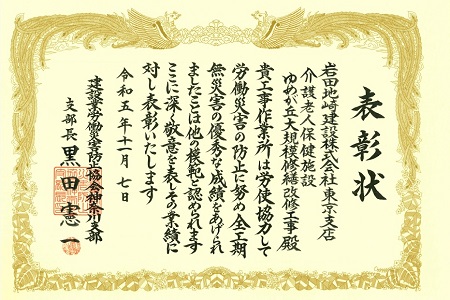 表彰状
岩田地崎建設株式会社東京支店
介護老人保健施設
ゆめが丘大規模修繕改修工事殿
貴工事作業所は労使協力して
労働災害の防止に努め全工期
無災害の優秀な成績をあげられ
ましたことは他の模範と認められます
ここに深く敬意を表しその業績に
対し表彰いたします
令和五年十一月七日
建設業労働災害防止協会神奈川支部
支部長 黒田憲一